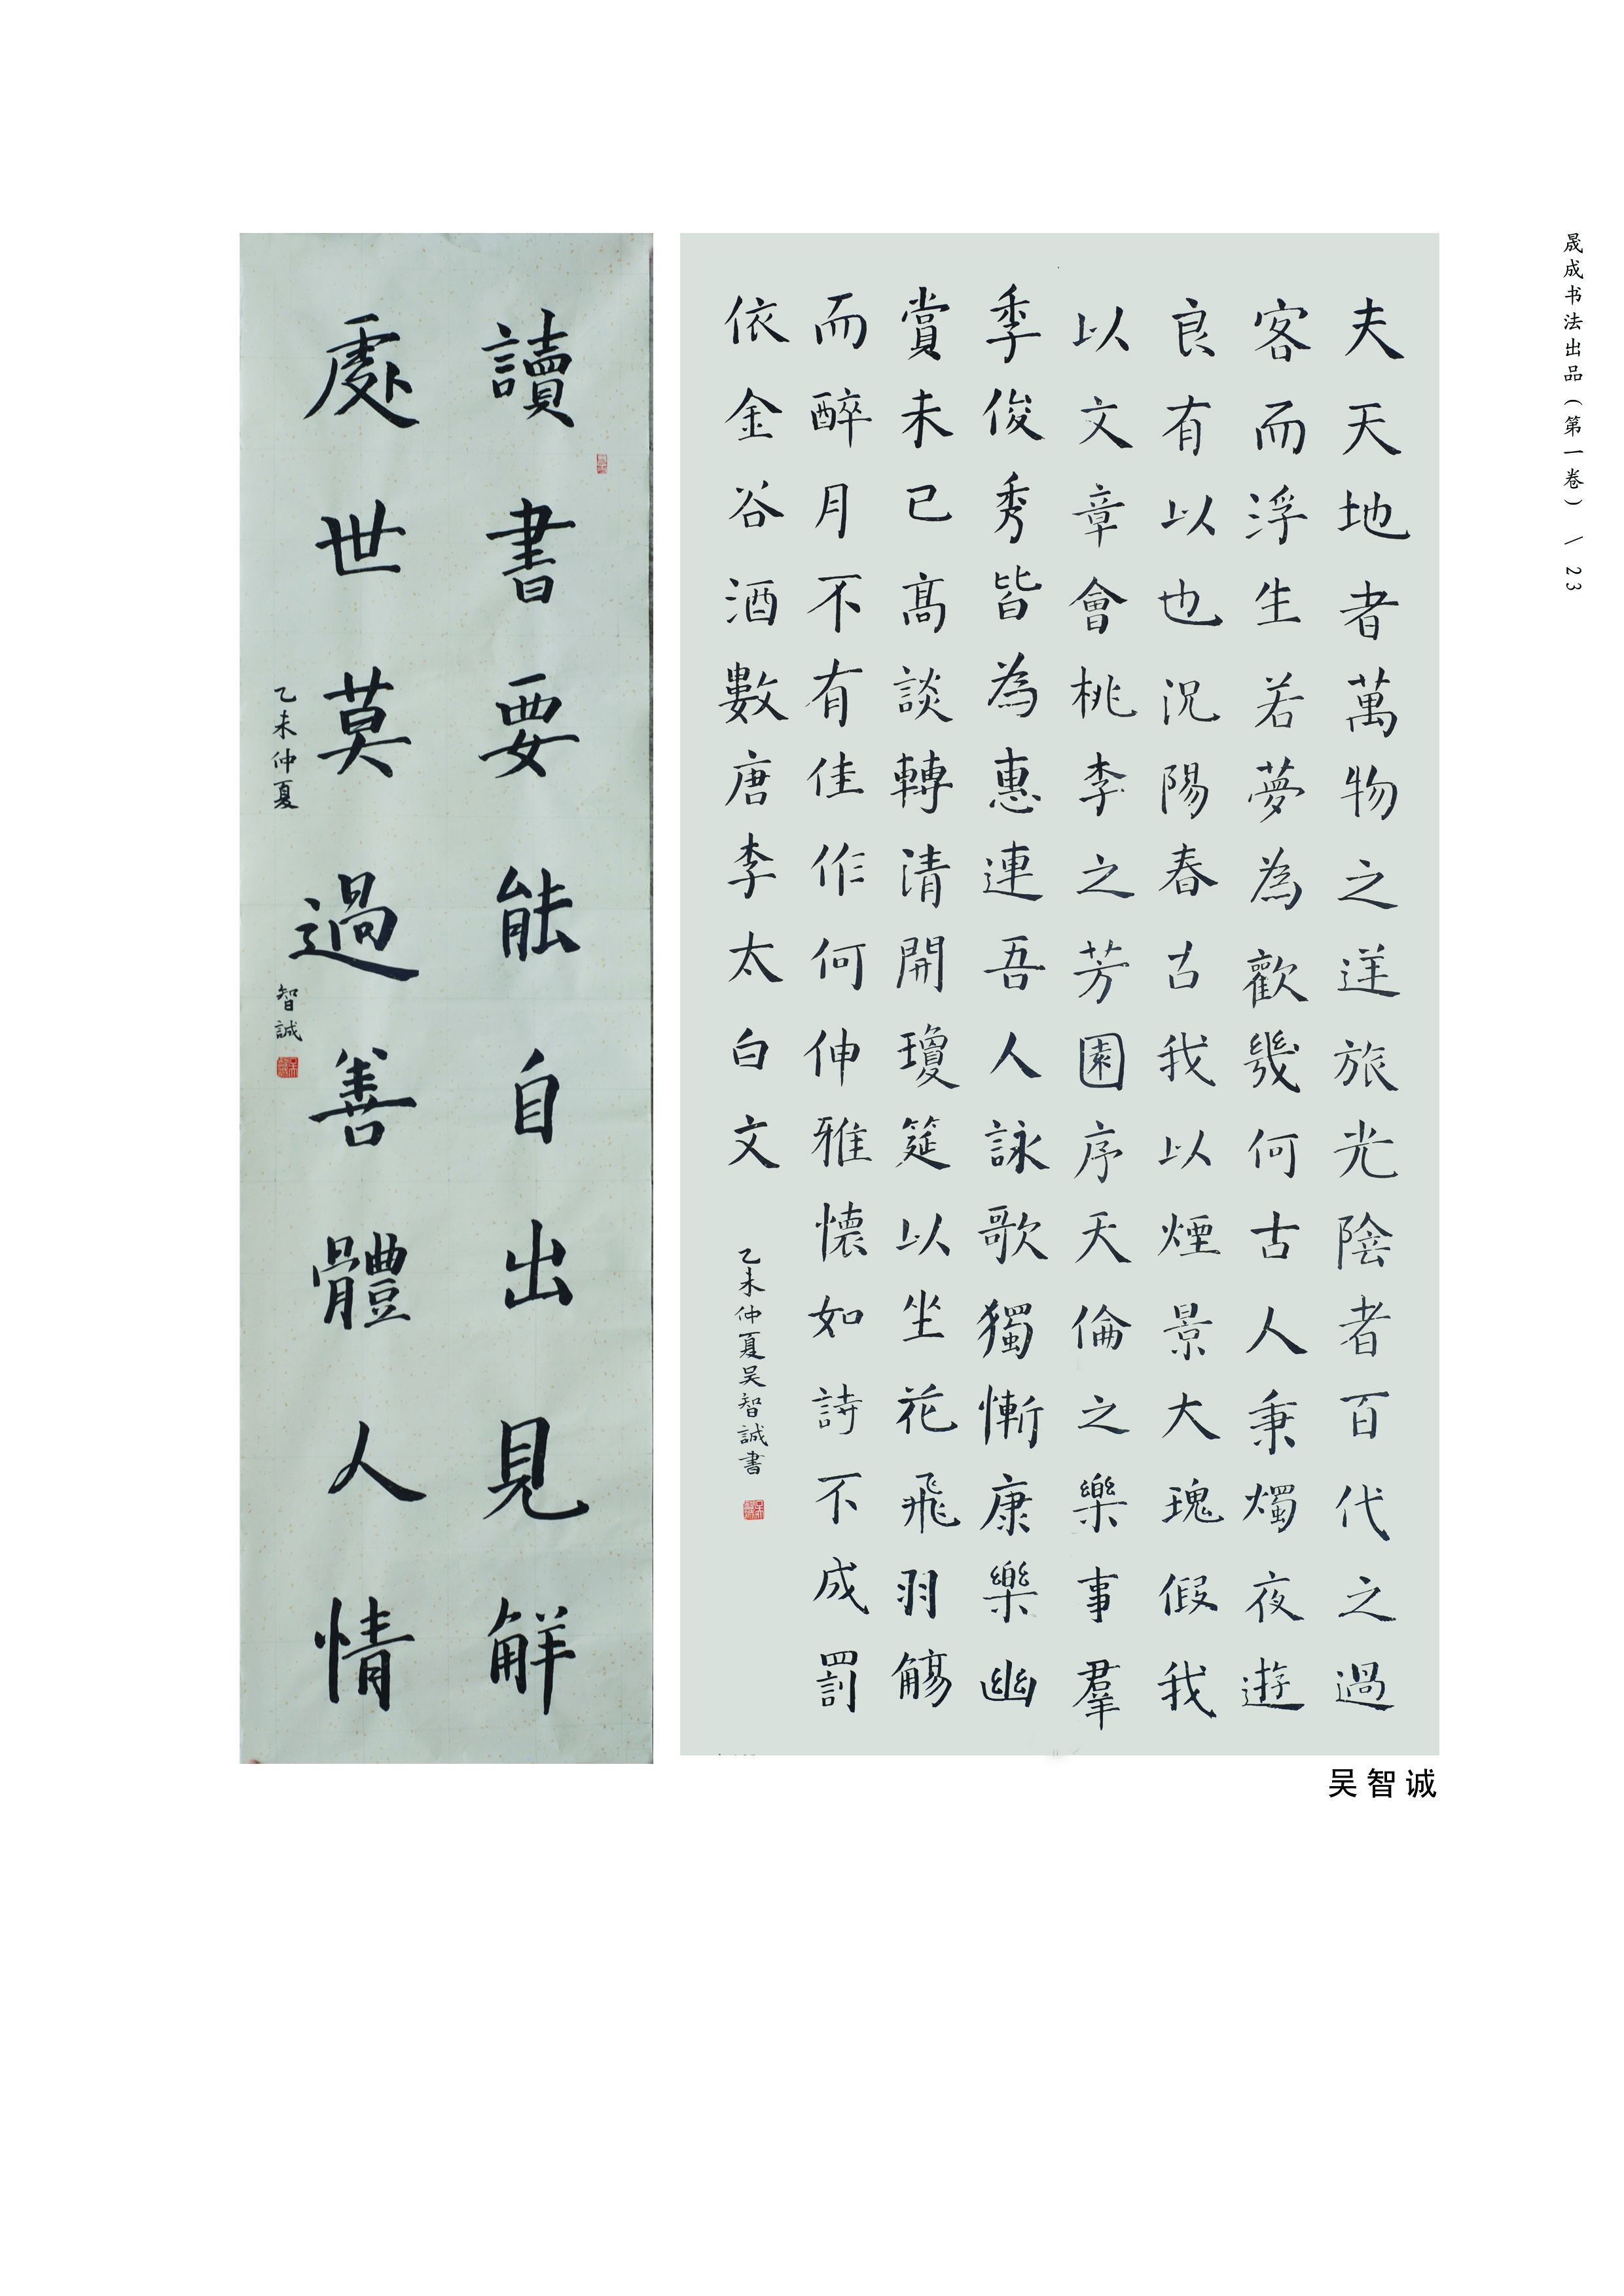 晟成书法出品（第一卷） / 23
夫天地者萬物之逆旅光陰者百代之過
客而浮生若夢為歡幾何古人秉燭夜遊
良有以也況陽春古我以煙景大瑰假我
以文章會桃李之芳園序天倫之樂事羣
季俊秀皆為惠連吾人詠歌獨慚康樂幽
賞未已髙談轉清開瓊筵以坐花飛羽觴
而醉月不有佳作何伸雅懷如詩不成罰
依金谷酒數唐李太白文
乙未仲夏吴智誠書
讀書要能自出見解
處世莫過善體人情
乙未仲夏 智誠
吴智诚